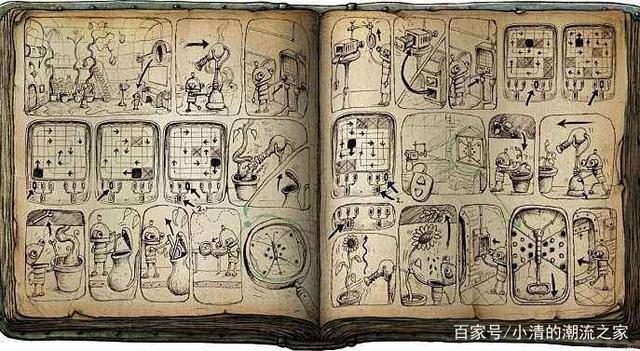 百家号/小清的潮流之家